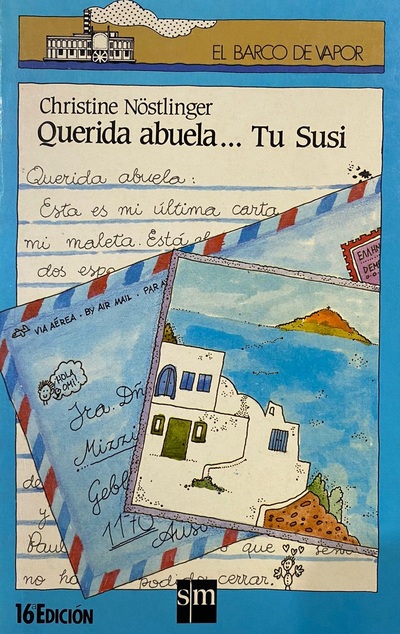 EL BARCO DE VAPOR
Christine Nöstlinger
Querida abuela... Tu Susi
Querida abuela:
Esta es mi última carta
mi maleta. Está
dos
VIA AÉREA · BY AIR MAIL · PAR
HOLA
OMI!
Mizzi
1170
y
Paul que
no podido cerrar.
16ª EDICIÓN
sm